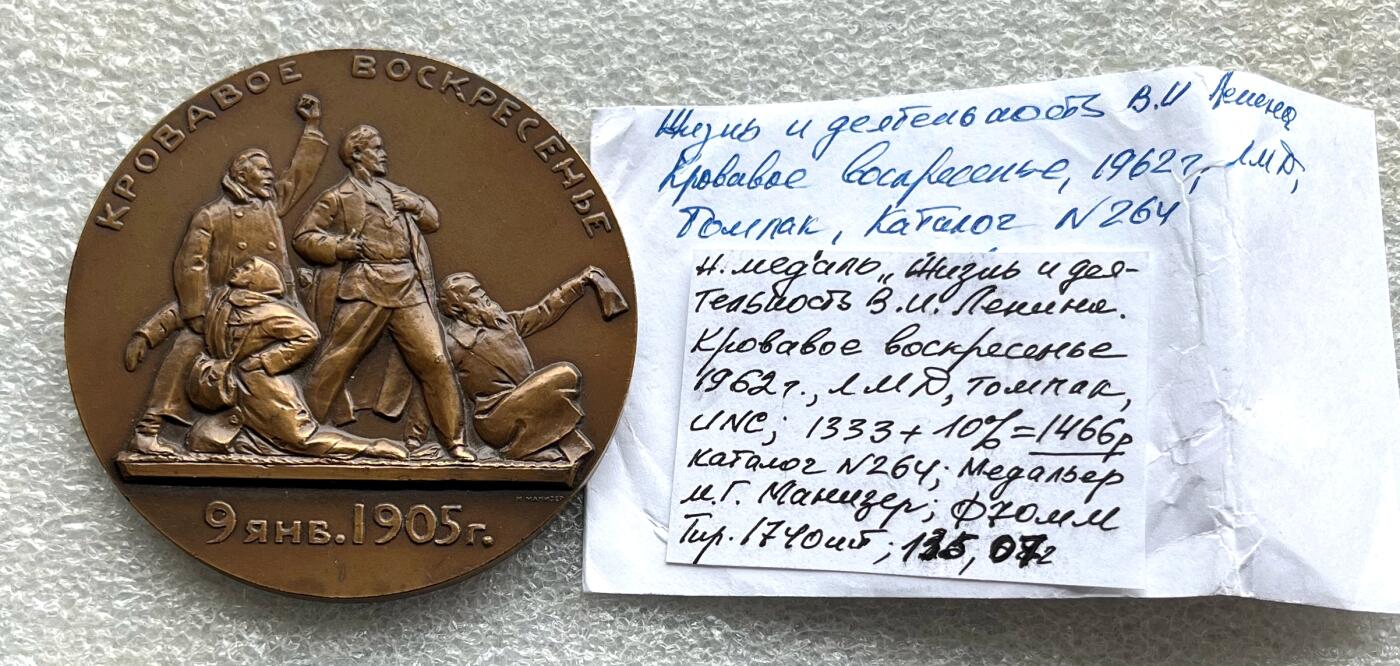 КРОВАВОЕ ВОСКРЕСЕНЬЕ
М. МАНИЗЕР
9 ЯНВ. 1905 г.
Жизнь и деятельность В.И Ленина
Кровавое воскресенье, 1962 г, ЛМД,
Томпак, Каталог N 264
Н. медаль „Жизнь и дея-
тельность В.И. Ленина.
Кровавое воскресенье
1962 г., ЛМД, томпак,
UNC; 1333 + 10% = 1466р
каталог N 264; Медальер
М.Г. Манизер; Ф70мм
Тир. 1740шт;